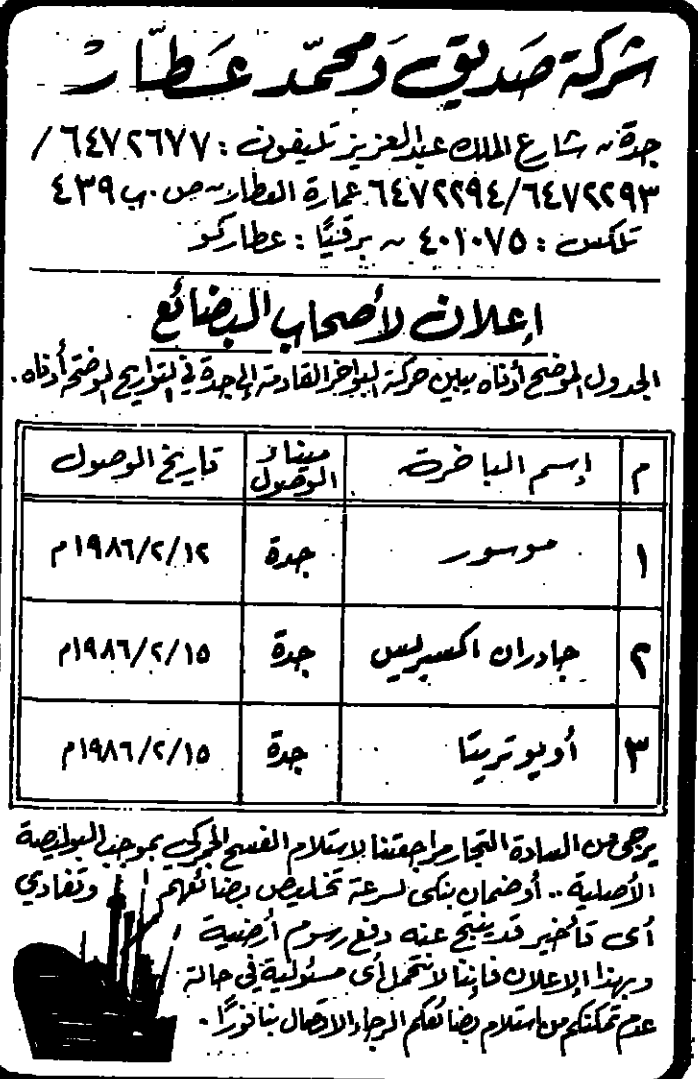 شركة صَديق وَمحمّد عَطّار
جدة ~ شارع الملك عبدالعزيز تليفون : ٦٤٧٢٦٧٧ /
٦٤٧٢٢٩٣/٦٤٧٢٢٩٤ عمارة العطار ~ ص . ب ٤٣٩
تلكس : ٤٠١٠٧٥ ~ برقيًا : عطاركو
إعلان لأصحاب البضائع
الجدول الموضح أدناه يبين حركة البواخر القادمة إلى جدة في التواريخ الموضحة أدناه .
م إسم الباخرة ميناء الوصول تاريخ الوصول
١ موسور جدة ١٩٨٦/٢/١٢م
٢ جادران اكسبريس جدة ١٩٨٦/٢/١٥م
٣ أوبوتريتا جدة ١٩٨٦/٢/١٥م
يرجى من السادة التجار مراجعتنا لاستلام الفسح الجمركي بموجب البوليصة
الأصلية .. أو ضمان بنكى لسرعة تخليص بضائعهم وتفادي
أى تأخير قد ينتج عنه دفع رسوم أرضية
وبهذا الإعلان فإننا لانتحمل أى مسئولية في حالة
عدم تمكنكم من استلام بضائعكم الرجاء الاتصال بنا فورًا .